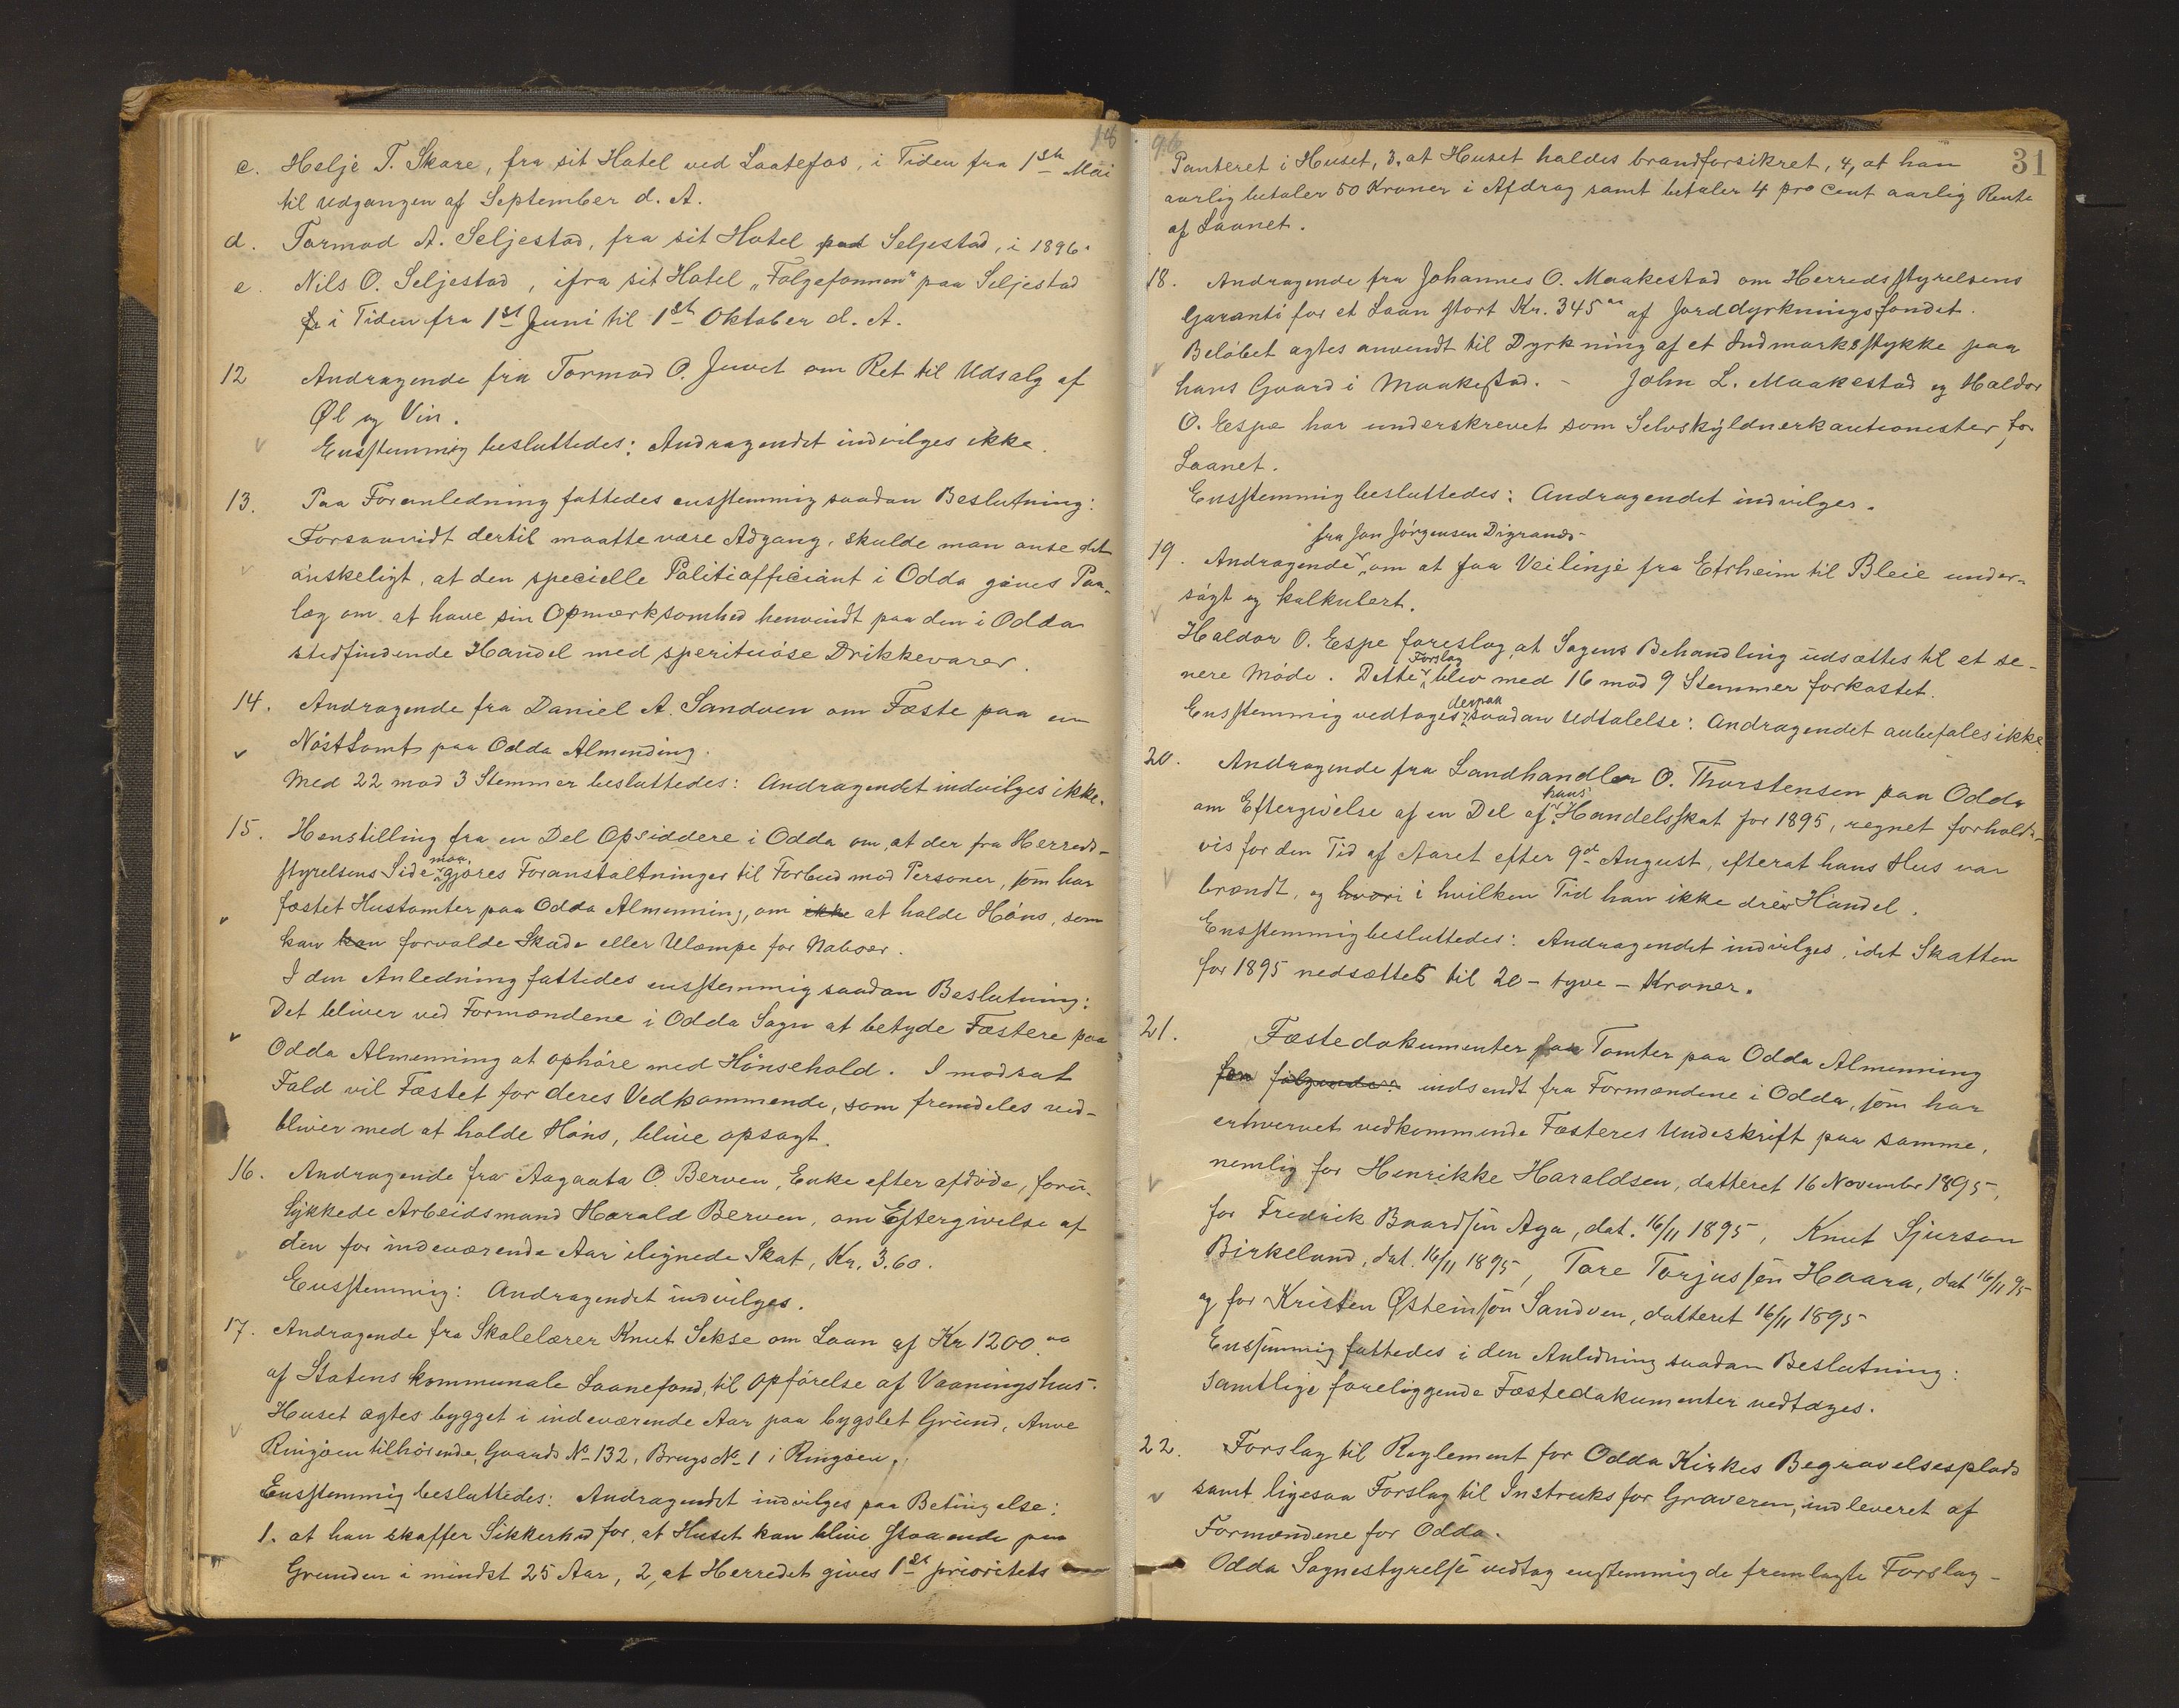 18
c. Helje T. Skare, fra sit Hotel ved Laatefos, i Tiden fra 1ste Mai
til Udgangen af September d. A.
d. Tormod A. Seljestad, fra sit Hotel paa Seljestad, i 1896.
e. Nils O. Seljestad, ifra sit Hotel „Folgefonnen" paa Seljestad
fr i Tiden fra 1ste Juni til 1ste Oktober d. A.
12 Andragende fra Tormod O. Juvet om Ret til Udsalg af
Øl og Vin.
Ensstemmig besluttedes: Andragendet indvilges ikke.
13. Paa Foranledning fattedes ensstemmig saadan Beslutning:
Forsaavidt dertil maatte være Adgang, skulde man anse det
ønskeligt, at den specielle Politiafficiant i Odda gives Paa-
læg om at have sin Opmærksomhed henvendt paa den i Odda
stedfindende Handel med sperituøse Drikkevarer.
14. Andragende fra Daniel A. Sandven om Fæste paa en
Nøsttomt paa Odda Almending.
Med 22 mod 3 Stemmer besluttedes: Andragendet indvilges ikke.
15. Henstilling fra en Del Opsiddere i Odda om, at der fra Herreds-
styrelsens Side maa gjøres Foranstaltninger til Forbud mod Personer, som har
fæstet Hustomter paa Odda Almenning, om ikke at holde Høns, som
kan kan forvolde Skade eller Ulæmpe for Naboer.
I den Anledning fattedes ensstemmig saadan Beslutning:
Det bliver ved Formændene i Odda Sogn at betyde Fæstere paa
Odda Almenning at ophøre med Hønsehold. I modsat
Fald vil Fæstet for deres Vedkommende, som fremdeles ved-
bliver med at holde Høns, blive opsagt.
16. Andragende fra Aagaata O. Berven, Enke efter afdøde, foru-
lykkede Arbeidsmand Harald Berven, om Eftergivelse af
den for indeværende Aar ilignede Skat, Kr. 3.60.
Ensstemmig: Andragendet indvilges.
17. Andragende fra Skolelærer Knut Sekse om Laan af Kr 1200.00
af Statens kommunale Laanefond, til Opførelse af Vaaningshus.
Huset agtes bygget i indeværende Aar paa bygslet Grund, Anve
Ringøen tilhørende, Gaards No 132, Brugs No 1 i Ringøen.
Ensstemmig besluttedes: Andragendet indvilges paa Betingelse:
1. at han skaffer Sikkerhed for, at Huset kan blive staaende paa
Grunden i mindst 25 Aar, 2, at Herredet gives 1ste prioritets
96
31
Panteret i Huset, 3, at Huset holdes brandforsikret, 4, at han
aarlig betaler 50 Kroner i Afdrag samt betaler 4 pro Cent aarlig Rente
af Laanet.
18. Andragende fra Johannes O. Maakestad om Herredsstyrelsens
Garanti for et Laan stort Kr. 345 00 af Jorddyrkningsfondet.
Beløbet agtes anvendt til Dyrkning af et Indmarksstykke paa
hans Gaard i Maakestad. - John L. Maakestad og Haldor
O. Espe har underskrevet som Selvskyldnerkautionister for
Laanet.
Ensstemmig besluttedes: Andragendet indvilges.
fra Jon Jørgensen Digranes
19. Andragende om at faa Veilinje fra Eitrheim til Bleie under-
søgt og kalkulert.
Haldor O. Espe foreslog, at Sagens Behandling udsættes til et se-
nere Møde. Dette Forslag blev med 16 mod 9 Stemmer forkastet.
Ensstemmig vedtoges derpaa saadan Udtalelse: Andragendet anbefales ikke.
20. Andragende fra Landhandler O. Thorstensen paa Odda
om Eftergivelse af en Del af hans Handelsskat for 1895, regnet forholds-
vis for den Tid af Aaret efter 9de August, efterat hans Hus var
brændt, og hvori i hvilken Tid han ikke drev Handel.
Ensstemmig besluttedes: Andragendet indvilges, idet Skatten
for 1895 nedsættes til 20 - tyve - Kroner.
21. Fæstedokumenter paa Tomter paa Odda Almenning
fra følgende: indsendt fra Formændene i Odda, som har
erhvervet vedkommende Fæsteres Undeskrift paa samme,
nemlig for Henrikke Haraldsen, datteret 16 November 1895,
for Fredrik Baardsen Aga, dat. 16/11 1895, Knut Sjurson
Birkeland, dat. 16/11 1895, Tore Torjussøn Haara, dat 16/11 95
og for Kristen Østeinsøn Sandven, datteret 16/11 1895
Ensstemmig fattedes i den Anledning saadan Beslutning:
Samtlige foreliggende Fæstedokumenter vedtages.
22. Forslag til Reglement for Odda Kirkes Begravelsesplads
samt ligesaa Forslag til Instruks for Graveren, indleveret af
Formændene for Odda.
Odda Sognestyrelse vedtog enstemmig de fremlagte Forslag -